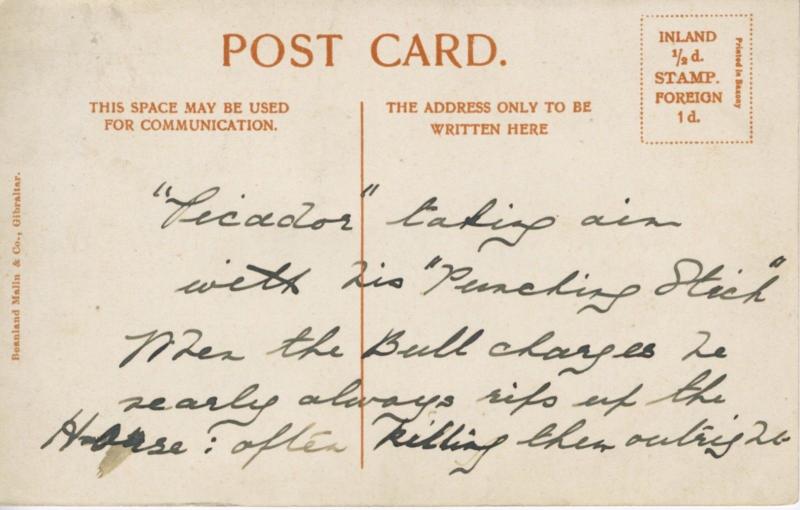 POST CARD.
THIS SPACE MAY BE USED
FOR COMMUNICATION.
THE ADDRESS ONLY TO BE
WRITTEN HERE
INLAND
½ d.
STAMP.
FOREIGN
1 d.
Printed in Saxony
Beanland Malin & Co., Gibraltar.
"Picador" taking aim
with his "Punching Stick"
When the Bull charges he
nearly always rips up the
Horse : often killing them outright